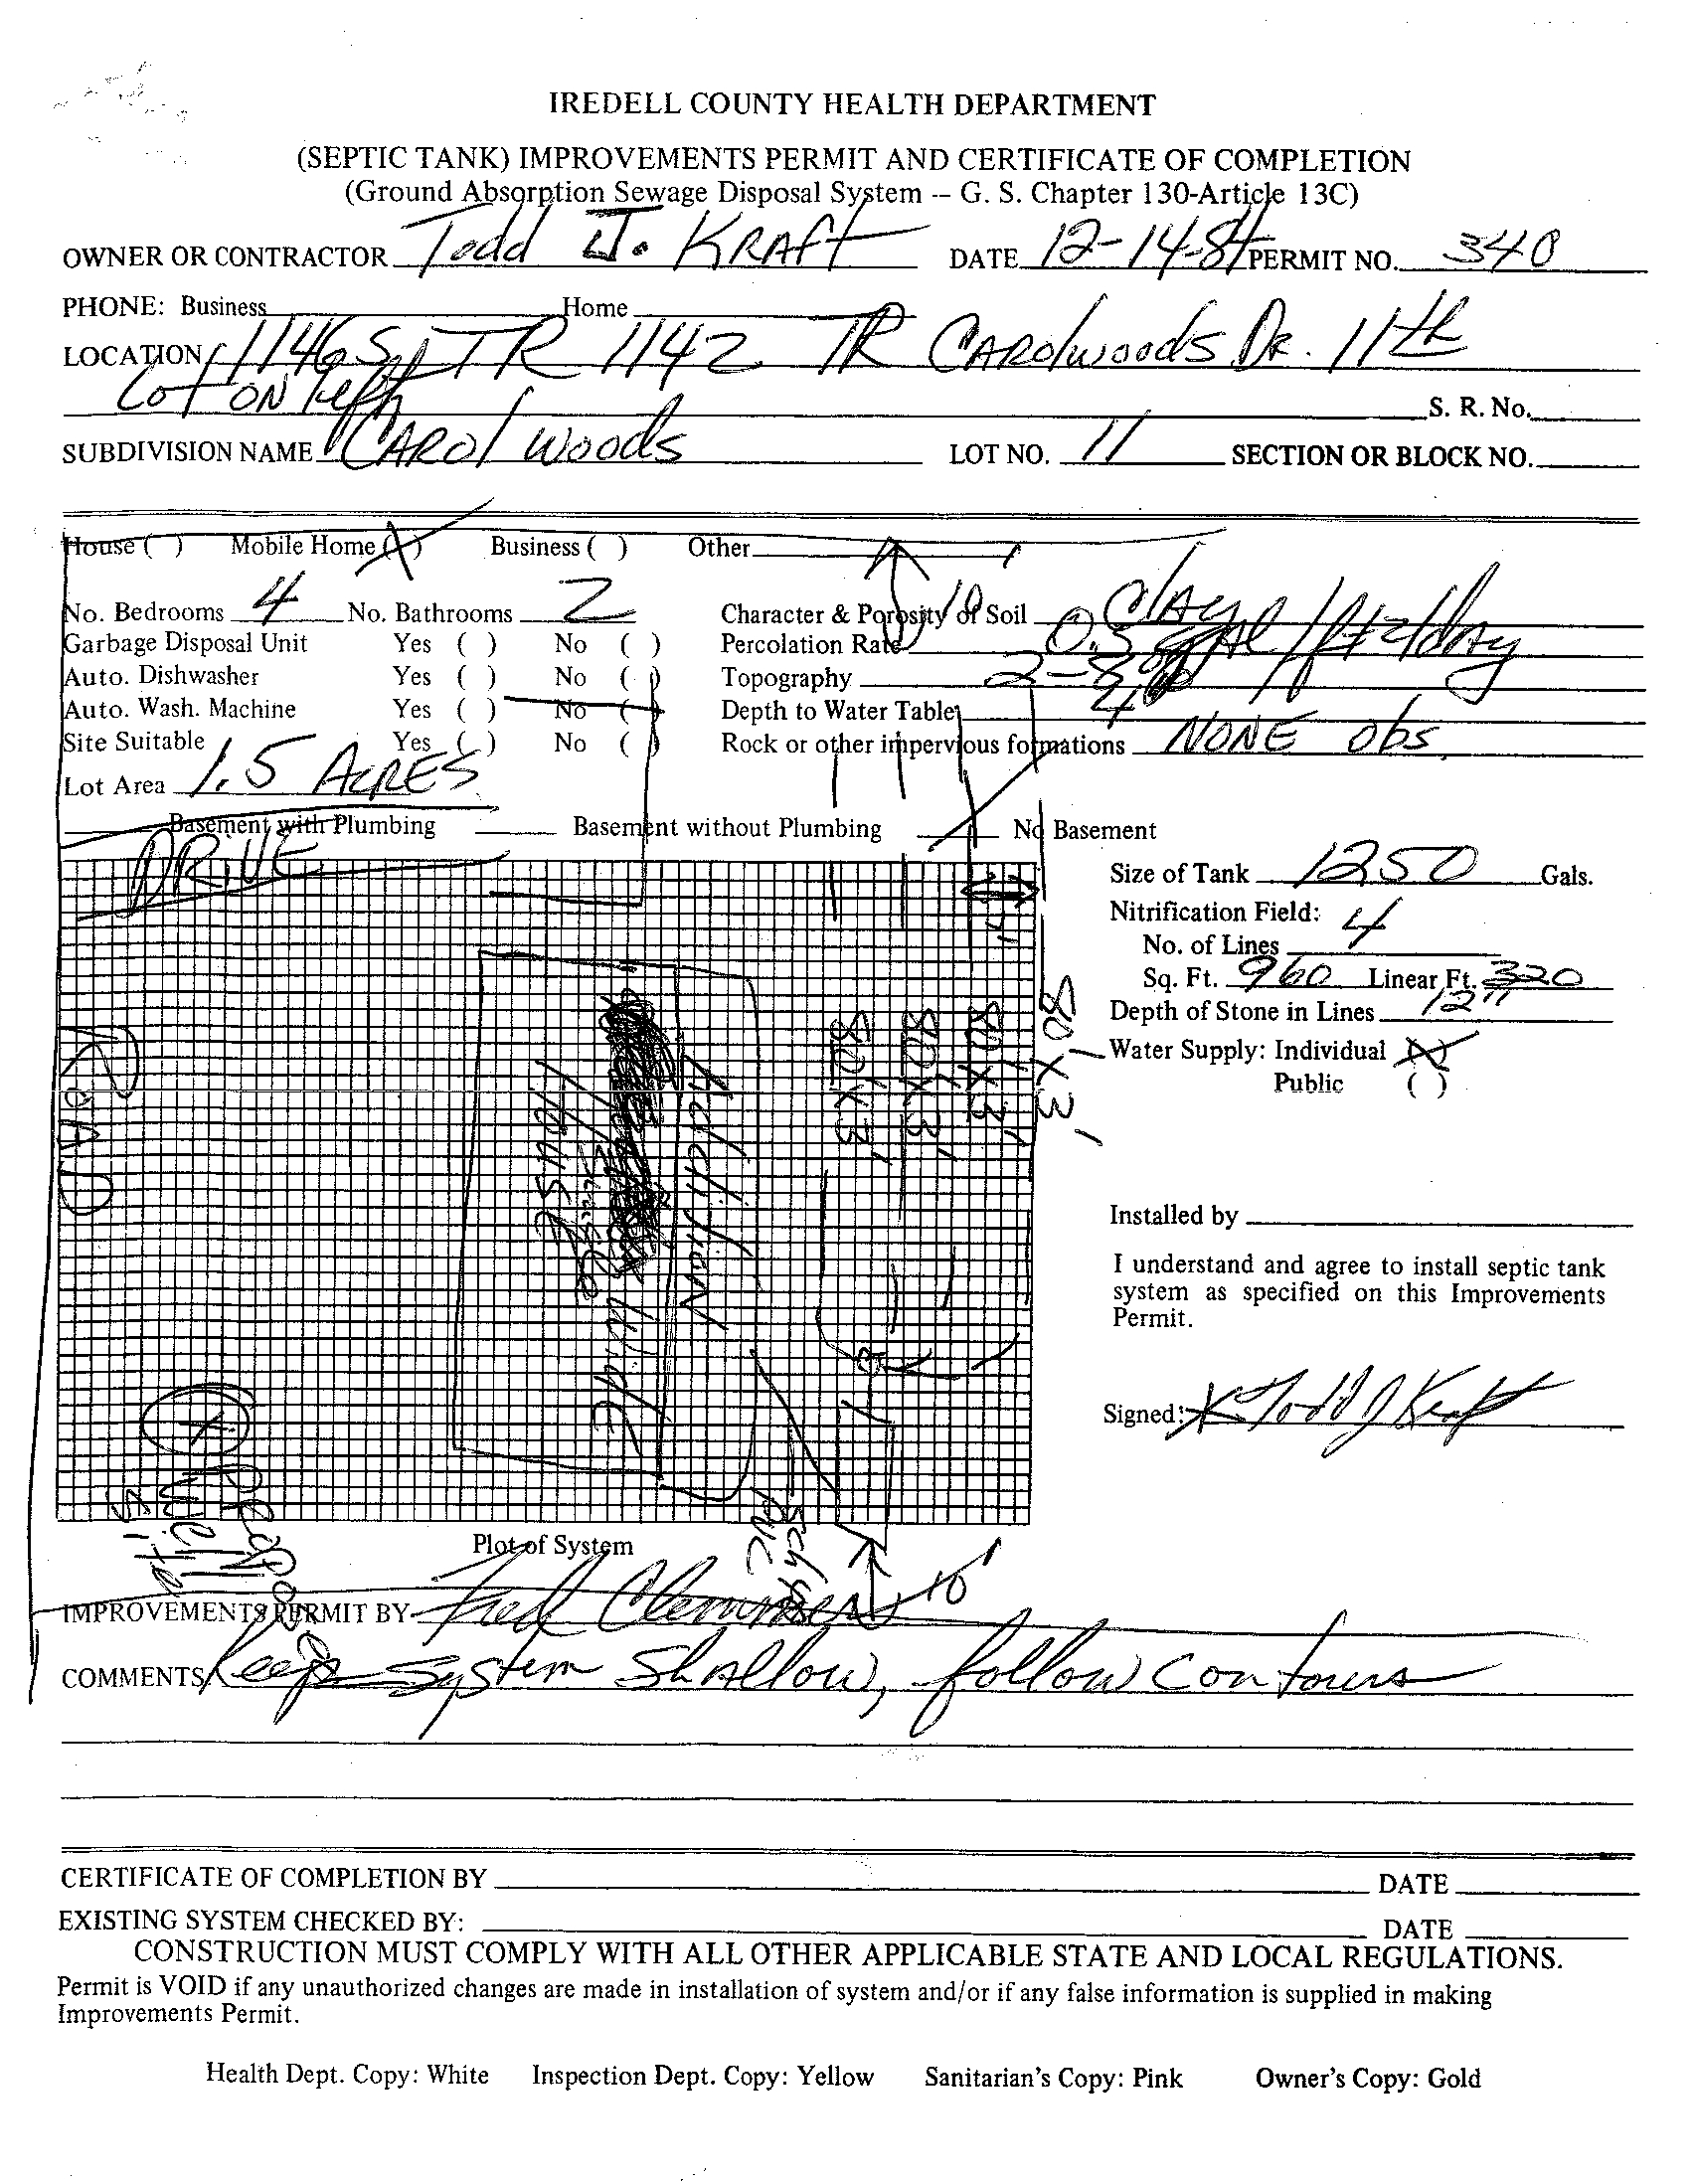 IREDELL COUNTY HEALTH DEPARTMENT
(SEPTIC TANK) IMPROVEMENTS PERMIT AND CERTIFICATE OF COMPLETION
(Ground Absorption Sewage Disposal System -- G. S. Chapter 130-Article 13C)
OWNER OR CONTRACTOR Todd J. KRAft DATE 12-14-84 PERMIT NO. 340
PHONE: Business Home
LOCATION 1146 TR 1142 TR CAROlwoods DR. 11th
Lot ON left S. R. No.
SUBDIVISION NAME CAROl woods LOT NO. 11 SECTION OR BLOCK NO.
House ( ) Mobile Home (X) Business ( ) Other
No. Bedrooms 4 No. Bathrooms 2 Character & Porosity of Soil clay
Garbage Disposal Unit Yes ( ) No ( ) Percolation Rate 0.3 gAl/ft2/day
Auto. Dishwasher Yes ( ) No ( ) Topography
Auto. Wash. Machine Yes ( ) No ( ) Depth to Water Table
Site Suitable Yes ( ) No ( ) Rock or other impervious formations NONE obs.
Lot Area 1.5 ACRES
Basement with Plumbing Basement without Plumbing No Basement
10'
DRIVE
ROAD
HOUSE
Addition
80'x3'
80'x3'
80'x3'
80'x3'
Size of Tank 1250 Gals.
Nitrification Field:
No. of Lines 4
Sq. Ft. 960 Linear Ft. 320
Depth of Stone in Lines 12"
Water Supply: Individual (X)
Public ( )
Installed by
I understand and agree to install septic tank
system as specified on this Improvements
Permit.
Signed: X Todd J Kraft
Proposed
Well
Site
Sch 40
PVC
10'
Plot of System
IMPROVEMENTS PERMIT BY Fred Clemmens
COMMENTS Keep system shallow, follow contours
CERTIFICATE OF COMPLETION BY DATE
EXISTING SYSTEM CHECKED BY: DATE
CONSTRUCTION MUST COMPLY WITH ALL OTHER APPLICABLE STATE AND LOCAL REGULATIONS.
Permit is VOID if any unauthorized changes are made in installation of system and/or if any false information is supplied in making
Improvements Permit.
Health Dept. Copy: White Inspection Dept. Copy: Yellow Sanitarian's Copy: Pink Owner's Copy: Gold